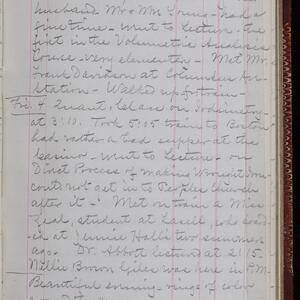 husband Mr & Mrs Young - had a
fine time - went to Lecture - the
first in the Volumetric Analysis
Course - very elementary - Met Mr
Frank Davison at Columbus Av-
Station - Walked up from
Fri. 4. Quant. Lab are on Iodimetry -
at 3:10. Took 5:05 train to Boston
had rather a bad supper at the
- went to Lecture - on
Direct Process of making Wrought Iron
could not get in to Peoples Church
after it - Met on train a Miss
Read, student at Lasell, who
in at Jennie Hall's two summers
ago. Dr. Abbott lectured at 2:15.
Nellie Brown Giles was here in P.M.
Beautiful evening - range of color